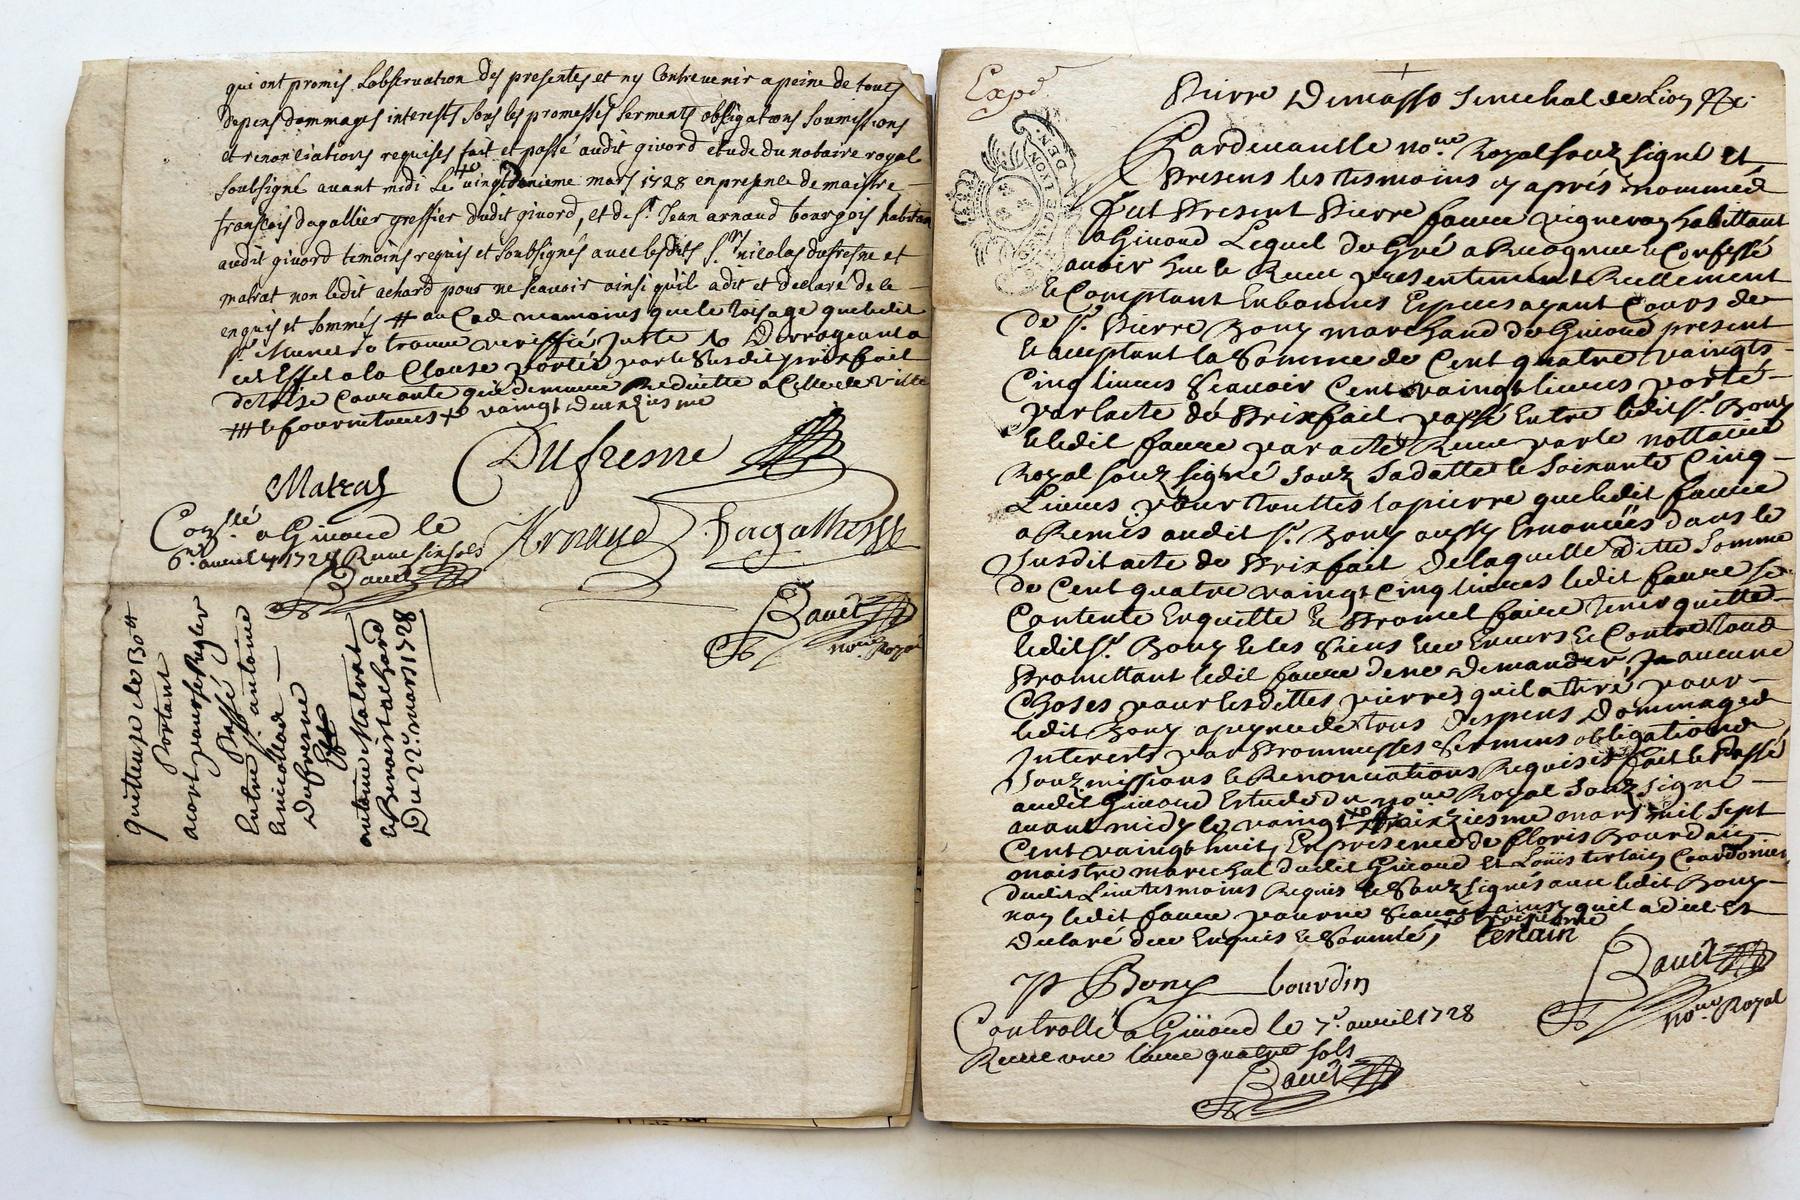 qui ont promis Lobservation des presentes et ny Contrevenir a peine de tous
depens dommages interests sous les promesses serments obligations soumissions
et renonciations requises fait et passé audit givord etude du notaire royal
soubsigné avant midi Le vingt mars 1728 en presence de maistre
françois dagallier greffier dudit givord, et de sr. Jean arnaud bourgois habitan
audit givord temoins requis et soubsignés avec lesdits Srs. nicolas dufresne et
matrat non ledit achard pour ne scavoir ainsi qu'il a dit et declaré de ce
enquis et sommés # au Cas neamoins que le toisage que ledit
Sr. trouve veriffié juste & Derrogeant a
cet Effet a la Clause portée par le Susdit prisfait
de toise Courante qui demeure Reduitte a Celle de ville
# et fournitures x vaingt Deuxiesme
Dufresne
Matras
Arnaud
Conllé a Givord le
6e. avril 1728 Receu six sols
Bauet
Bauet
nore. Royal
quittance de 130 tt
Portant
acort pour se Regler
Passé
Entre sr. antoine
Et nicollas
Dufresne
Et
antoine Matrat
et Benoist achard
Du 22e. mars 1728
Expé
Pierre Dumasso Senechal de Lion &c
Pardevant le nore. Royal souz signé Et
Presens les tesmoins cy aprés nommés
fut Present Pierre faure vigneron habittant
a Givord Lequel de Gré a Recogneu et Confessé
avoir heu et Receu presentement Reellement
et Comptant En bonnes Especes ayant Cours de
de Sr. Pierre Bony marchand de Givord present
et acceptant la Somme de Cent quatre vaingts
Cinq livres Scavoir Cent vaingt livres porté
par lacte de Prixfait passé Entre ledit Sr. Bony
et ledit faure par acte Receu par le nottaire
Royal souz signé souz Sa datte et Soixante Cinq
Livres pour touttes la pierre que ledit faure
a Remis audit Sr. Bony aussy Enoncées dans le
Susdit acte de Prixfait De laquelle ditte Somme
de Cent quatre vaingt Cinq livres ledit faure se
Contente En quitte et Promet faire tenir quitte
ledit Sr. Bony et les Siens Envers et Contre tous
Promettant ledit faure de ne demander aucune
Choses pour lesdittes pierres quil a tiré pour
ledit Bony a peyne de tous Despens Dommages
Interests par Prommesses Sermens obligations
Souzmissions et Renonciations Requises fait et Passé
audit Givord Estude du nore. Royal souz signé
avant midy le vaingt mars mil sept
Cent vaingt huit, En presence de floris Bourdain
maistre marechal dudit Givord Et Louis tertain Cordonier
dudit Lieu tesmoins Requis et Souz signés avec ledit Bony
non ledit faure pour ne Scavoir ainsy quil a dit Et
Declaré de ce Enquis et Sommé, x troisieme
P Bony bourdin
Bauet
nore. Royal
Controllé a Givord le 7e. avril 1728
Receu une livre quatre sols
Bauet